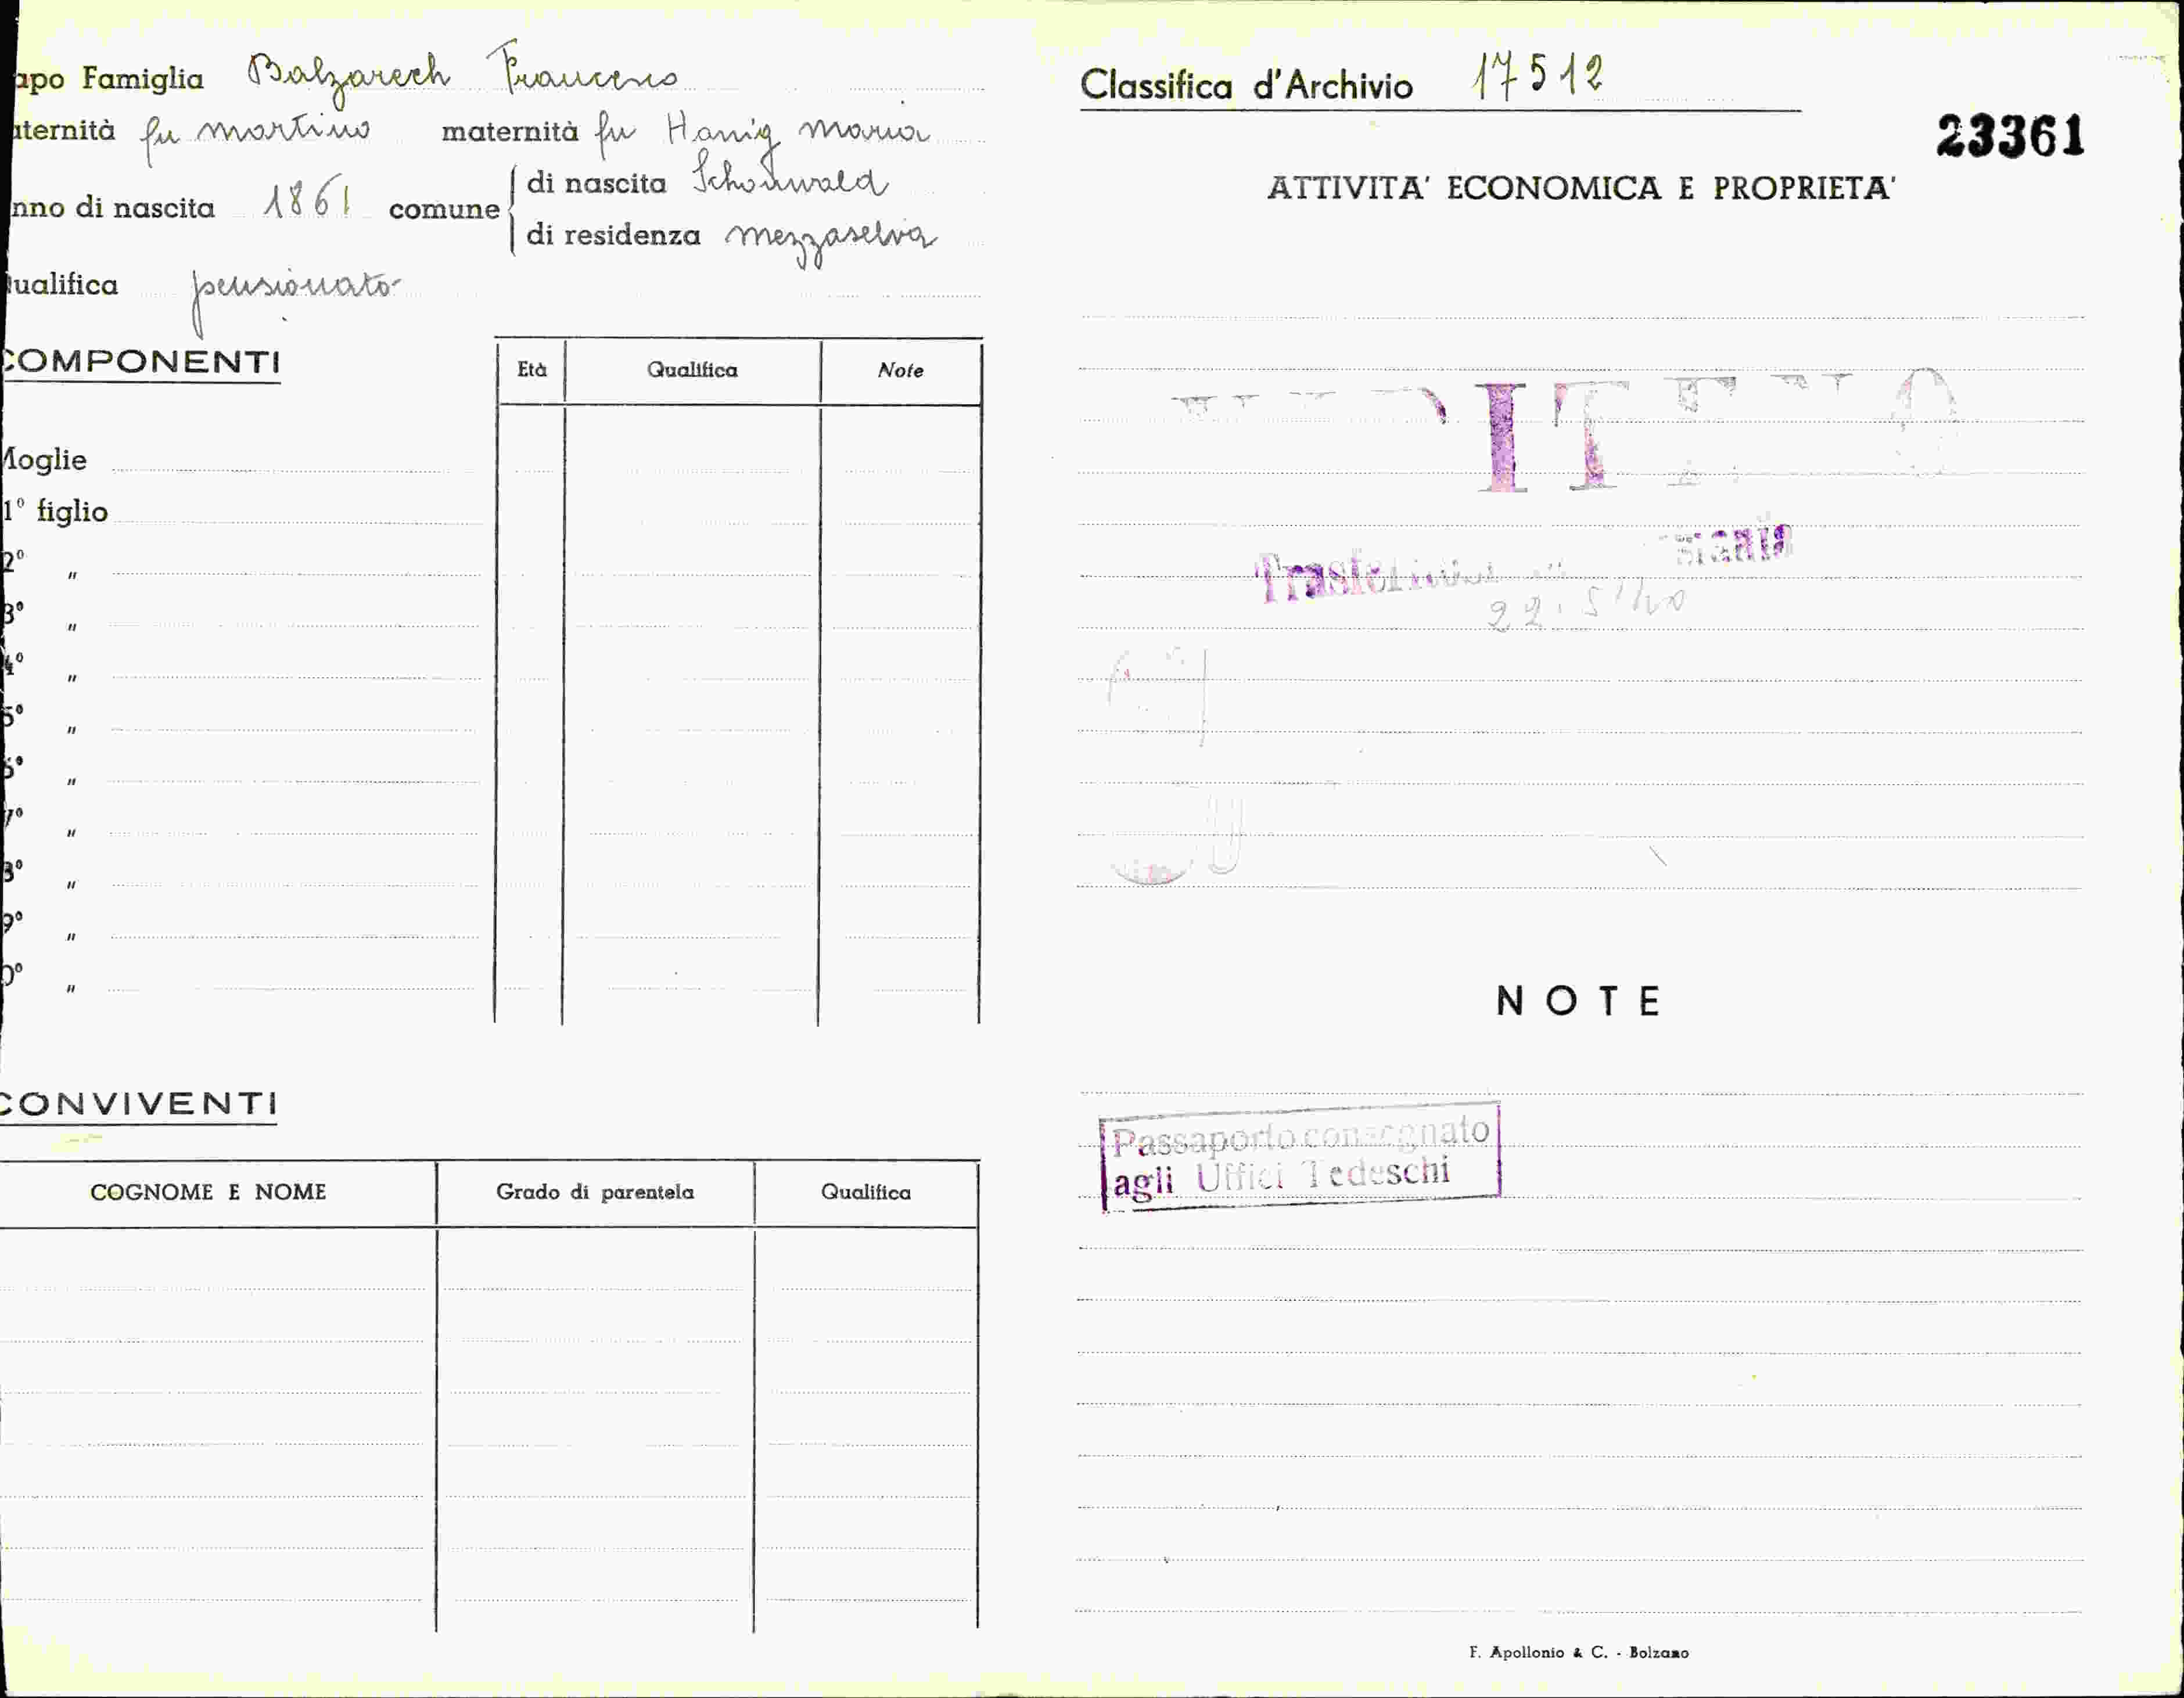 apo Famiglia Balzarech Francesco
aternità fu Martino maternità fu Hanig Maria
nno di nascita 1861 comune di nascita Schonwald
di residenza Mezzaselva
ualifica pensionato
COMPONENTI
Età Qualifica Note
Moglie
1° figlio
2° "
3° "
4° "
5° "
6° "
7° "
8° "
9° "
0° "
CONVIVENTI
COGNOME E NOME Grado di parentela Qualifica
Classifica d'Archivio 17512
23361
ATTIVITA' ECONOMICA E PROPRIETA'
22.5
NOTE
Passaporto consegnato
agli Uffici Tedeschi
F. Apollonio & C. - Bolzano